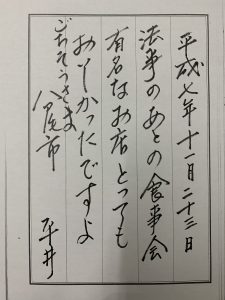 平成七年十一月二十三日
法事のあとの食事会
有名なお店とっても
おいしかったですよ
ごちそうさま
八尾市
平井